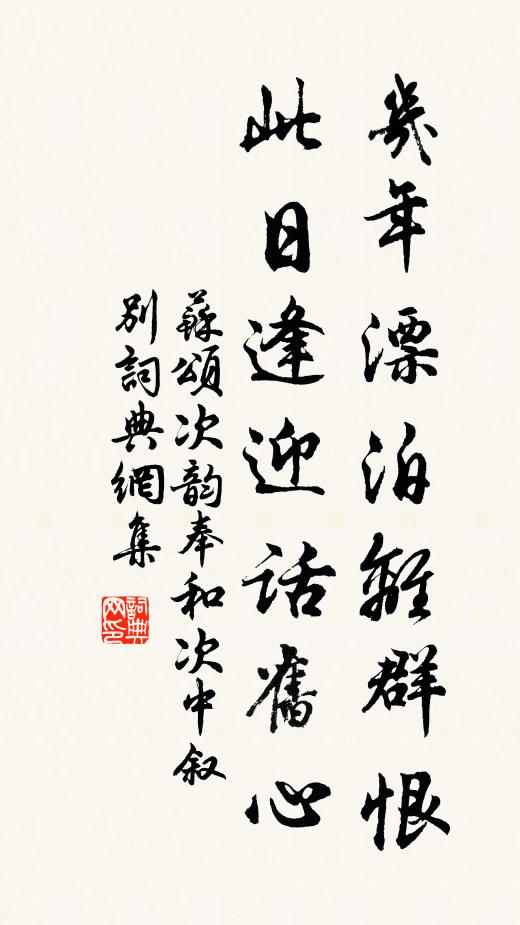 幾年漂泊離群恨
此日逢迎話舊心
蘇頌次韵奉和次中叙
別詞典網集
詞典
网印